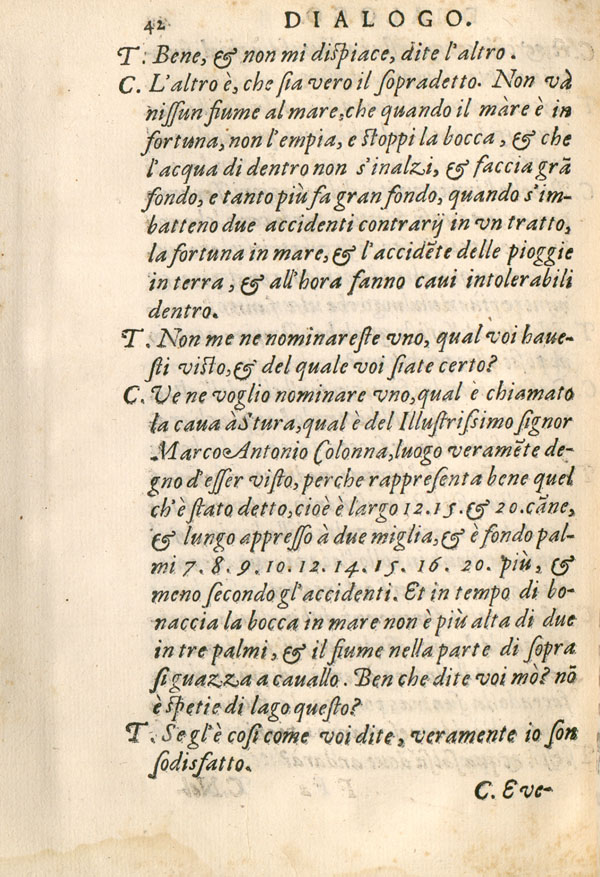 42 DIALOGO.
T. Bene, & non mi dispiace, dite l'altro.
C. L'altro è, che sia vero il sopradetto. Non và
nissun fiume al mare, che quando il màre è in
fortuna, non l'empia, e stoppi la bocca, & che
l'acqua di dentro non s'inalzi, & faccia grã
fondo, e tanto più fa gran fondo, quando s'im-
batteno due accidenti contrarij in vn tratto,
la fortuna in mare, & l'accidẽte delle pioggie
in terra, & all'hora fanno caui intolerabili
dentro.
T. Non me ne nominareste vno, qual voi haue-
sti visto, & del quale voi siate certo?
C. Ve ne voglio nominare vno, qual è chiamato
la caua à Stura, qual è del Illustrissimo signor
Marco Antonio Colonna, luogo veramẽte de-
gno d'esser visto, perche rappresenta bene quel
ch'è stato detto, cioè è largo 12. 15. & 20. cãne,
& lungo appresso à due miglia, & è fondo pal-
mi 7. 8. 9. 10. 12. 14. 15. 16. 20. più, &
meno secondo gl'accidenti. Et in tempo di bo-
naccia la bocca in mare non è più alta di due
in tre palmi, & il fiume nella parte di sopra
si guazza a cauallo. Ben che dite voi mò? nõ
è spetie di lago questo?
T. Se gl'è cosi come voi dite, veramente io son
sodisfatto.
C. Eve-